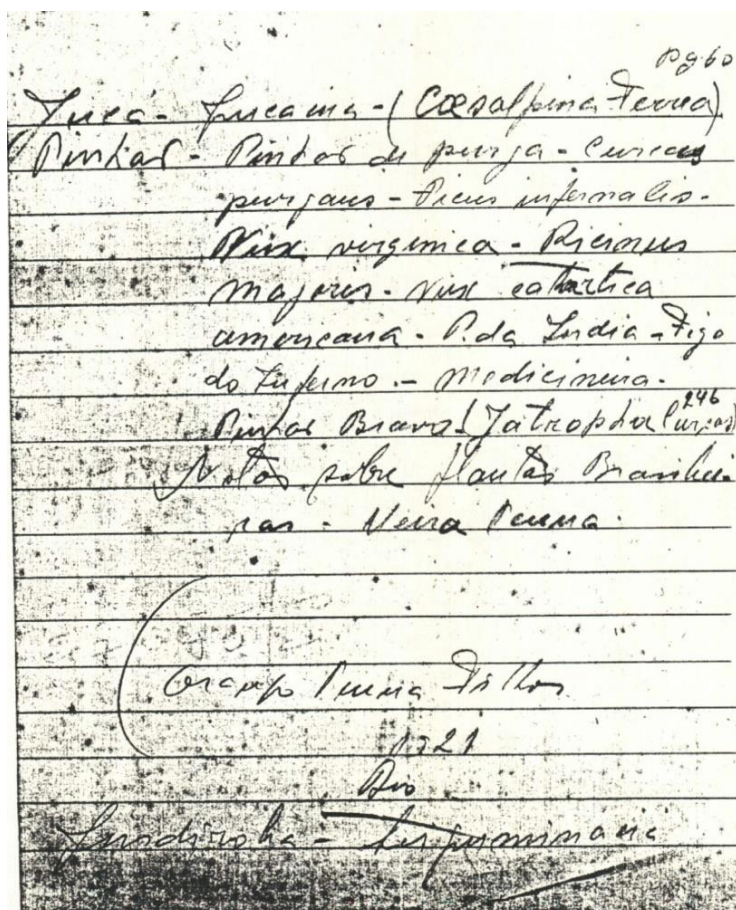 pg 60
Jucá - Jucaina - (Cœsalpina Ferrea)
Pinhão - Pinhão de purga - Curcas
purgans - Ficus infernalis -
Nux virginica - Ricinus
majoris - Nux catártica
americana - P. da India - Figo
do Inferno - Medicineira -
Pinhão Bravo (Jatropha Curcas) 246
Notas sobre Plantas Brasilei-
ras - Meira Penna
Araujo Penna Filhos
1921
Rio